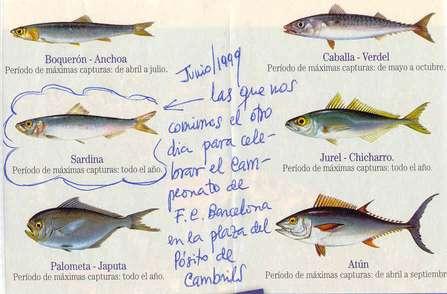 Boquerón - Anchoa
Período de máximas capturas: de abril a julio.
Caballa - Verdel
Período de máximas capturas: de mayo a octubre.
Junio/1999
Las que nos
comimos el otro
día para cele-
brar el Cam-
peonato de
F.C. Barcelona
en la plaza del
Pósito de
Cambrils
Sardina
Período de máximas capturas: todo el año.
Jurel - Chicharro.
Período de máximas capturas: todo el año.
Palometa - Japuta
Período de máximas capturas: todo el año.
Atún
Período de máximas capturas: de abril a septiembr